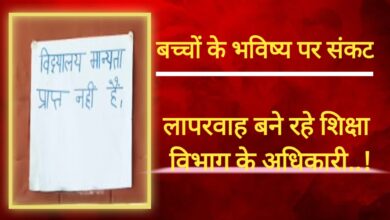 विद्यालय मान्यता
प्राप्त नही है,
बच्चों के भविष्य पर संकट
लापरवाह बने रहे शिक्षा
विभाग के अधिकारी..!